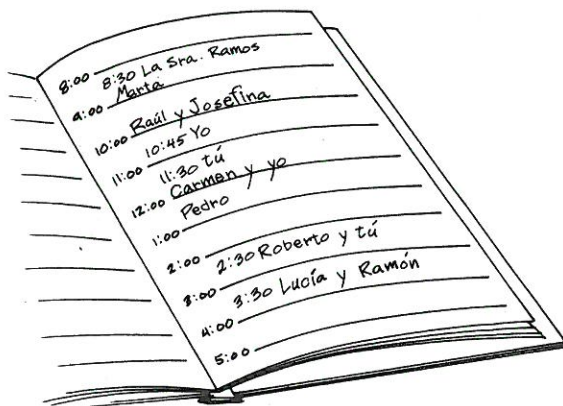 8:00
8:30 La Sra. Ramos
9:00 Marta
10:00 Raúl y Josefina
10:45 Yo
11:00
11:30 tú
12:00 Carmen y yo
Pedro
1:00
2:00
2:30 Roberto y tú
3:00
3:30 Lucía y Ramón
4:00
5:00